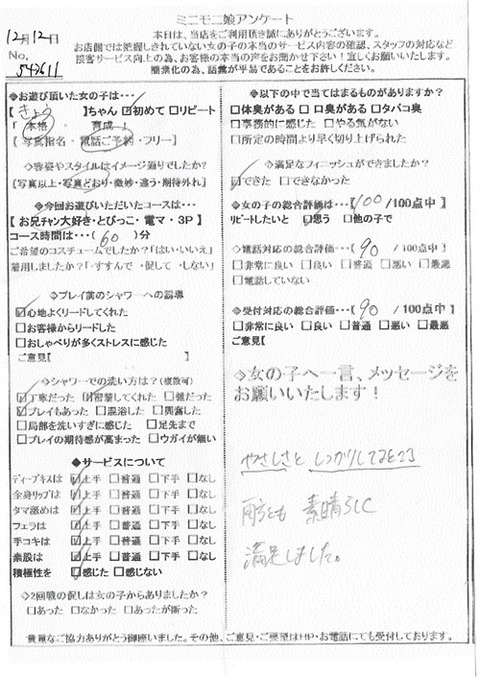 ミニモニ娘アンケート
12月12日
No. 542611
本日は、当店をご利用頂き誠にありがとうございます。
お店側では把握しきれていない女の子の本当のサービス内容の確認、スタッフの対応など
接客サービス向上の為、お客様の本当の声をお聞かせ下さい！宜しくお願いいたします。
簡素化の為、語彙が平易であることをお許しください。
◇お遊び頂いた女の子は…
【きょう】ちゃん ☑初めて □リピート
「 本格 ・ 育成 」
[写真指名・電話ご予約・フリー]
◇容姿やスタイルはイメージ通りでしたか？
[写真以上・写真どおり・微妙・違う・期待外れ]
◇今回お遊びいただいたコースは…
【お兄チャン大好き・とびっこ・電マ・3P】
コース時間は…( 60 )分
ご希望のコスチュームでしたか？「はい・いいえ」
着用しましたか？「すすんで ・促して ・しない」
◇プレイ前のシャワーへの誘導
☑心地よくリードしてくれた
□お客様からリードした
□おしゃべりが多くストレスに感じた
ご意見【 】
◇シャワーでの洗い方は？(複数可)
☑丁寧だった ☑密着してくれた □雑だった
☑プレイもあった □混浴した □興奮した
□局部を洗いすぎに感じた □足先まで
□プレイの期待感が高まった □ウガイが無い
◆サービスについて
ディープキスは ☑上手 □普通 □下手 □なし
全身リップは ☑上手 □普通 □下手 □なし
タマ舐めは ☑上手 □普通 □下手 □なし
フェラは ☑上手 □普通 □下手 □なし
手コキは ☑上手 □普通 □下手 □なし
素股は ☑上手 □普通 □下手 □なし
積極性を ☑感じた □感じない
◇2回戦の促しは女の子からありましたか？
□あった □なかった □あったが断った
◇以下の中で当てはまるものがありますか？
□体臭がある □口臭がある □タバコ臭
□事務的に感じた □やる気がない
□所定の時間より早く切り上げられた
◇満足なフィニッシュができましたか？
☑できた □できなかった
◇女の子の総合評価は…【100 /100点中】
リピートしたいと □思う □他の子で
◇電話対応の総合評価…【90 /100点中】
□非常に良い □良い □普通 □悪い □最悪
□電話していない
◇受付対応の総合評価…【90 /100点中】
□非常に良い □良い □普通 □悪い □最悪
ご意見【
◇女の子へ一言、メッセージを
お願いいたします！
やさしさと しっかりしてるところ
両方とも 素晴らしく
満足しました。
貴重なご協力ありがとう御座いました。その他、ご意見・ご要望はHP・お電話にても受付しております。